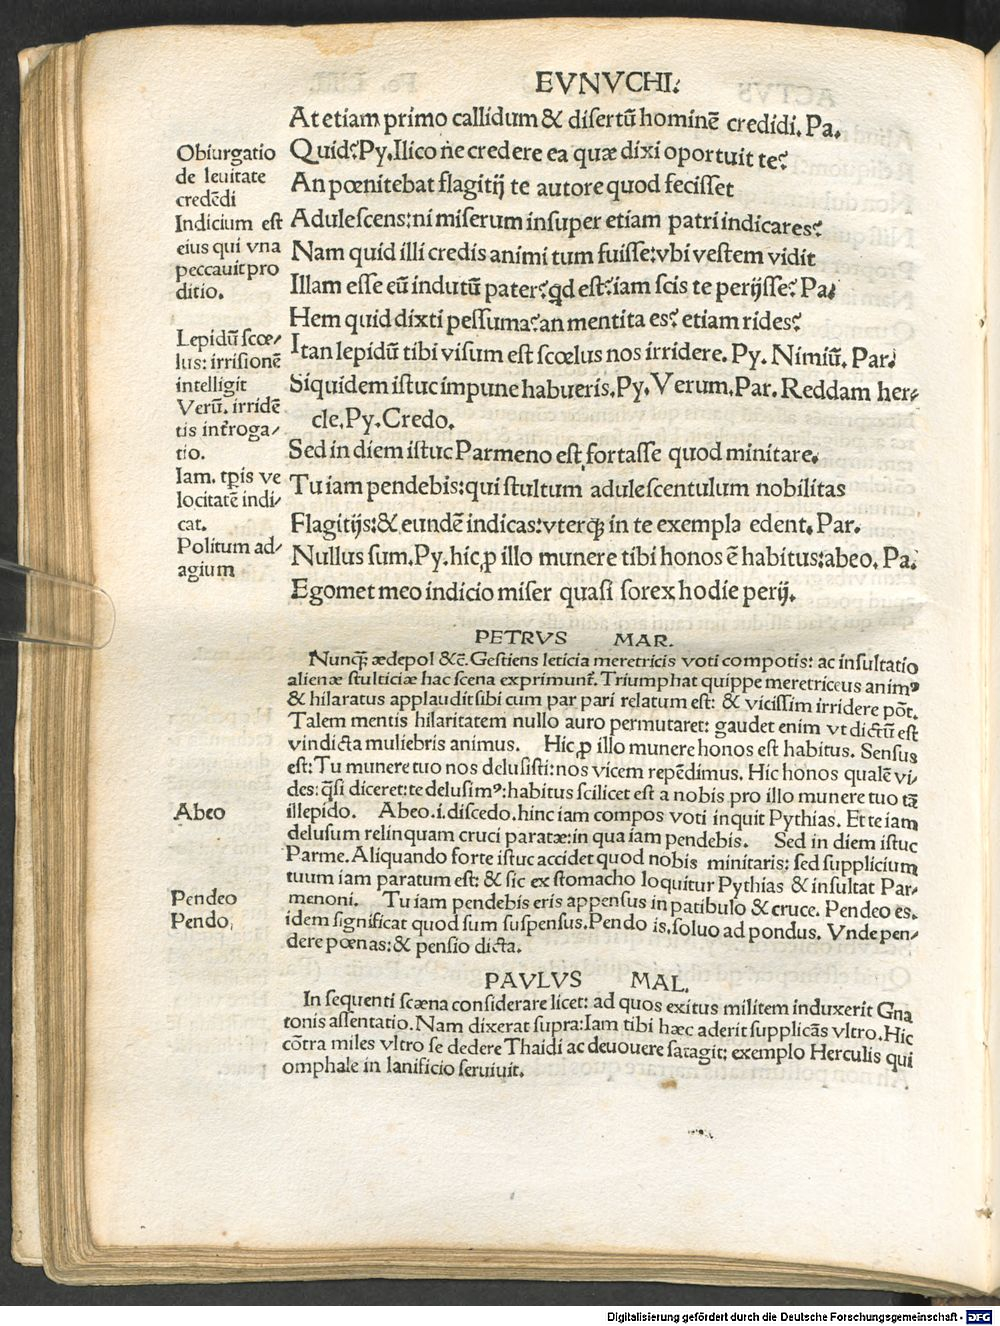 EVNVCHI.
At etiam primo callidum & disertũ hominẽ credidi. Pa.
Quid? Py. Ilico ne credere ea quæ dixi oportuit te?
An pœnitebat flagitij te autore quod fecisset
Adulescens: ni miserum insuper etiam patri indicares?
Nam quid illi credis animi tum fuisse: vbi vestem vidit
Illam esse eũ indutũ pater? qd est? iam scis te perijsse? Pa.
Hem quid dixti pessuma? an mentita es? etiam rides?
Itan lepidũ tibi visum est scœlus nos irridere. Py. Nimiũ. Par.
Siquidem istuc impune habueris. Py. Verum. Par. Reddam her-
cle. Py. Credo.
Sed in diem istuc Parmeno est fortasse quod minitare.
Tu iam pendebis: qui stultum adulescentulum nobilitas
Flagitijs: & eundẽ indicas: vterqꝫ in te exempla edent. Par.
Nullus sum. Py. hic ꝓ illo munere tibi honos ẽ habitus: abeo. Pa.
Egomet meo indicio miser quasi sorex hodie perij.
Obiurgatio
de leuitate
credẽdi
Indicium est
eius qui vna
peccauit pro
ditio.
Lepidũ scœ-
lus: irrisionẽ
intelligit
Verũ. irridẽ
tis intr̃oga-
tio.
Iam. tp̃is ve
locitatẽ indi-
cat.
Politum ad-
agium
PETRVS MAR.
Nunqꝫ ædepol &c̃. Gestiens leticia meretricis voti compotis: ac insultatio
alienæ stulticiæ hac scena exprimunt᷑. Triumphat quippe meretriceus animꝰ
& hilaratus applaudit sibi cum par pari relatum est: & vicissim irridere põt.
Talem mentis hilaritatem nullo auro permutaret: gaudet enim vt dictũ est
vindicta muliebris animus. Hic ꝓ illo munere honos est habitus. Sensus
est: Tu munere tuo nos delusisti: nos vicem repẽdimus. Hic honos qualẽ vi-
des: q̃si diceret: te delusimꝰ: habitus scilicet est a nobis pro illo munere tuo tã
illepido. Abeo. i. discedo. hinc iam compos voti inquit Pythias. Et te iam
delusum relinquam cruci paratæ: in qua iam pendebis. Sed in diem istuc
Parme. Aliquando forte istuc accidet quod nobis minitaris: sed supplicium
tuum iam paratum est: & sic ex stomacho loquitur Pythias & insultat Par-
menoni. Tu iam pendebis eris appensus in patibulo & cruce. Pendeo es.
idem significat quod sum suspensus. Pendo is. soluo ad pondus. Vnde pen-
dere pœnas: & pensio dicta.
Abeo
Pendeo
Pendo.
PAVLVS MAL.
In sequenti scæna considerare licet: ad quos exitus militem induxerit Gna
tonis assentatio. Nam dixerat supra: Iam tibi hæc aderit supplicãs vltro. Hic
cõtra miles vltro se dedere Thaidi ac deuouere satagit: exemplo Herculis qui
omphale in lanificio seruiuit.
Digitalisierung gefördert durch die Deutsche Forschungsgemeinschaft - DFG